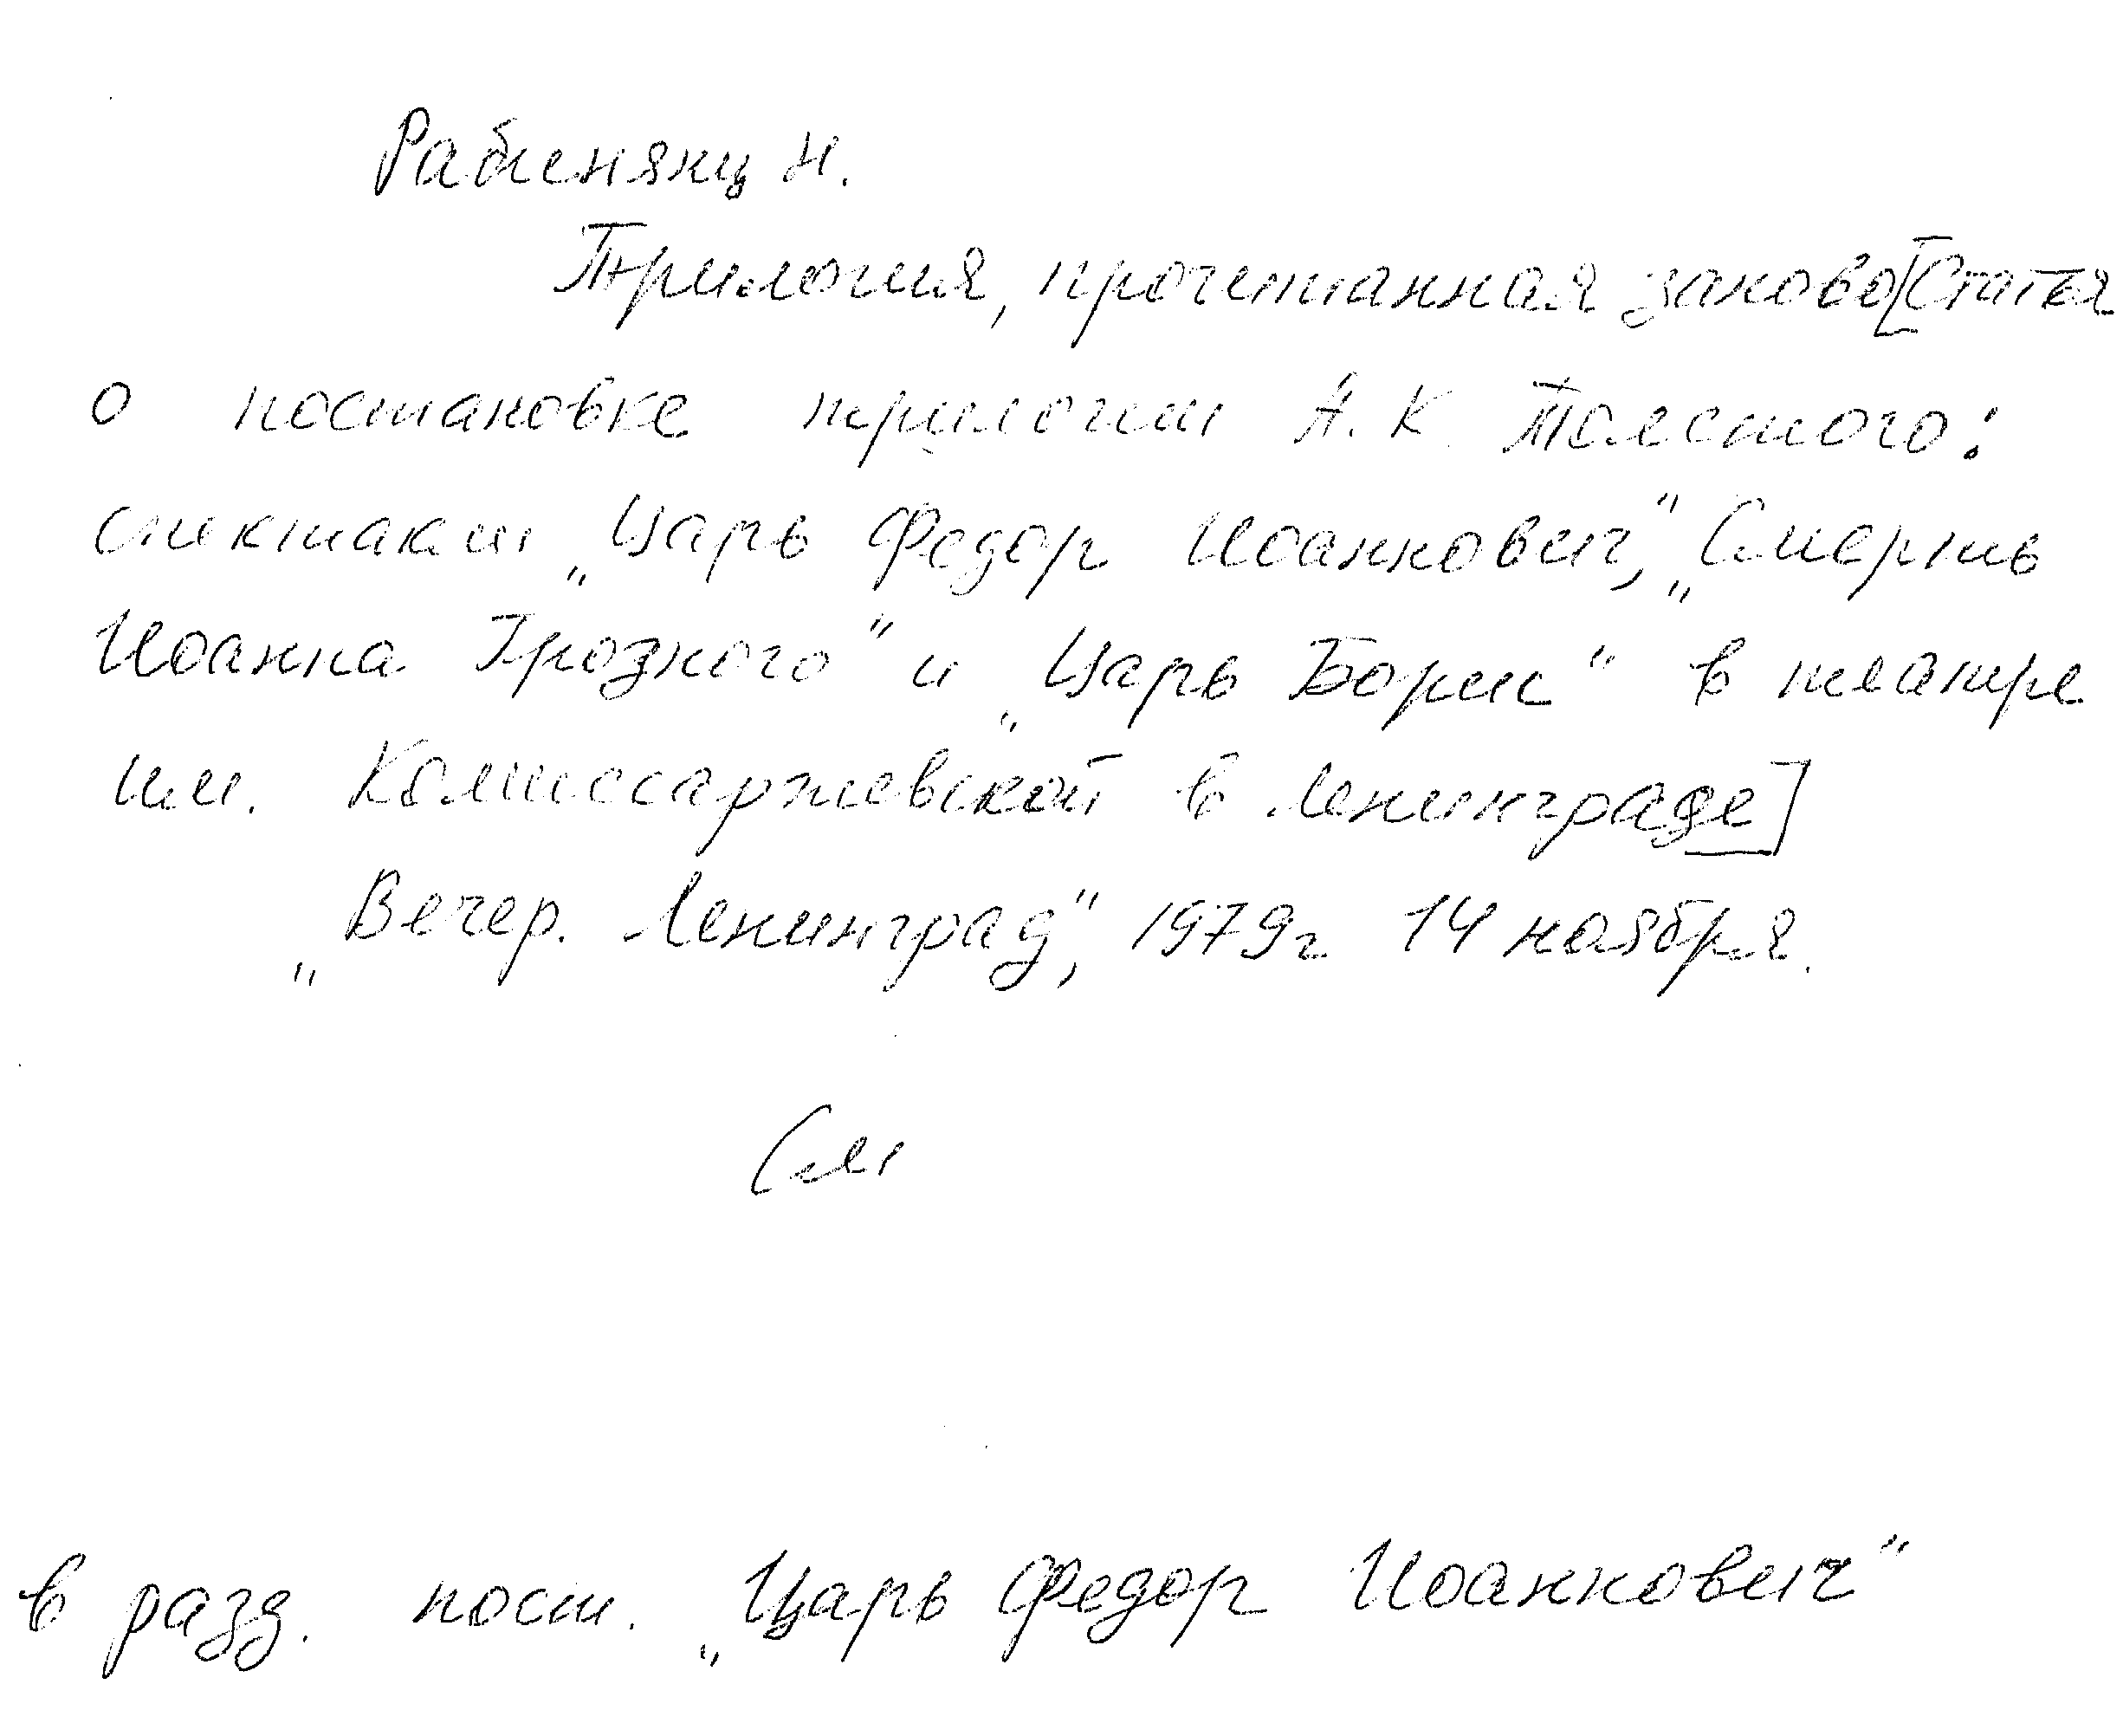 Рабинянц Н.
Трилогия, прочитанная заново [Статья
о постановке трилогии А. К. Толстого:
спектакли „Царь Федор Иоаннович", „Смерть
Иоанна Грозного" и „Царь Борис" в театре
им. Комиссаржевской в Ленинграде]
„Вечер. Ленинград", 1979г 14 ноября.
См
в разд. пост. „Царь Федор Иоаннович"